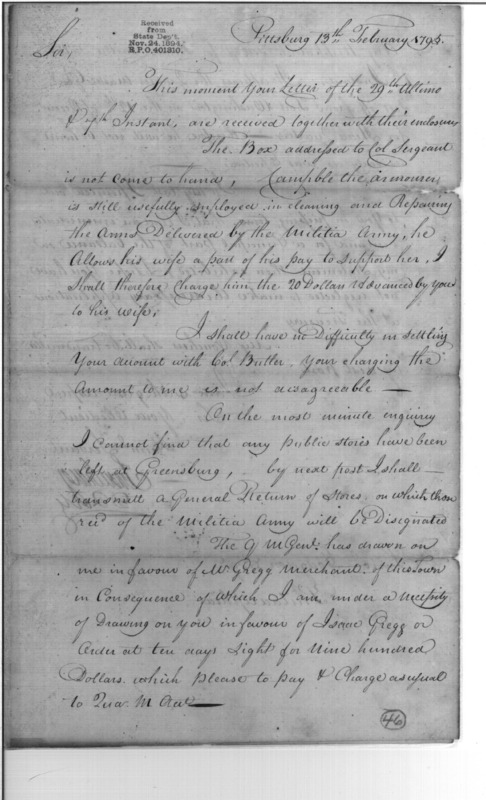 Received
from
State Dep't.
Nov. 24. 1894,
R.P.O. 401310.
Pittsburg 13th February 1795.
Sir,
This moment Your Letter of the 29th Ultimo
Instant, are received together with their enclosures
The Box addressed to Col Sergeant
is not come to hand, Campble the armourer
is still usefully employed in cleaning and Repairing
the Arms Delivered by the Militia Army, he
Allows his wife a part of his pay to support her, I
Shall therefore Charge him the 20 Dollars Advanced by you
to his wife,
I shall have no Difficulty in settling
Your account with Col Butler. Your charging the
amount to me is not disagreeable —
On the most minute enquiry
I cannot find that any public stores have been
left at Greensburg, by next post I shall —
transmitt a General Return of Stores, on which those
recd of the Militia Army will be Disignated
The Q M Genl. has drawn on
me in favour of Mr Gregg Merchant of this Town
in Consequence of which I am under a necessity
of Drawing on you in favour of Isaac Gregg or
Order at ten days Sight for Nine hundred
Dollars. which please to pay & Charge as usual
to Quar. M
46